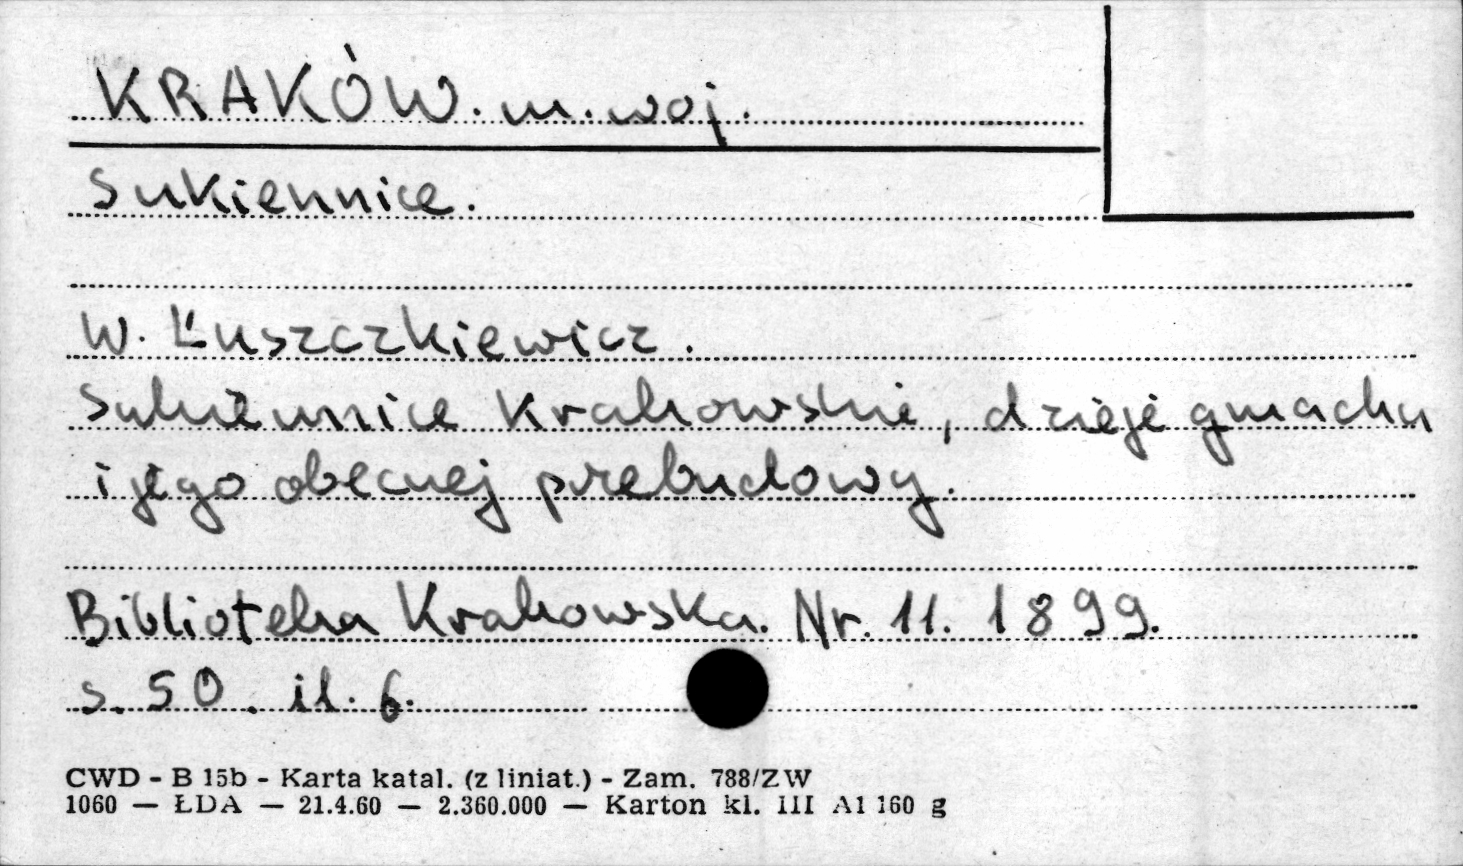 KRAKÓW. m. woj.
Sukiennice.
W. Łuszczkiewicz.
Sukiennice Krakowskie, dzieje gmachu
i jego obecnej przebudowy.
Biblioteka Krakowska. Nr. 11. 1899.
s. 50. il. 6.
CWD - B 15b - Karta katal. (z liniat.) - Zam. 788/ZW
1060 — ŁDA — 21.4.60 — 2.360.000 — Karton kl. III A1 160 g